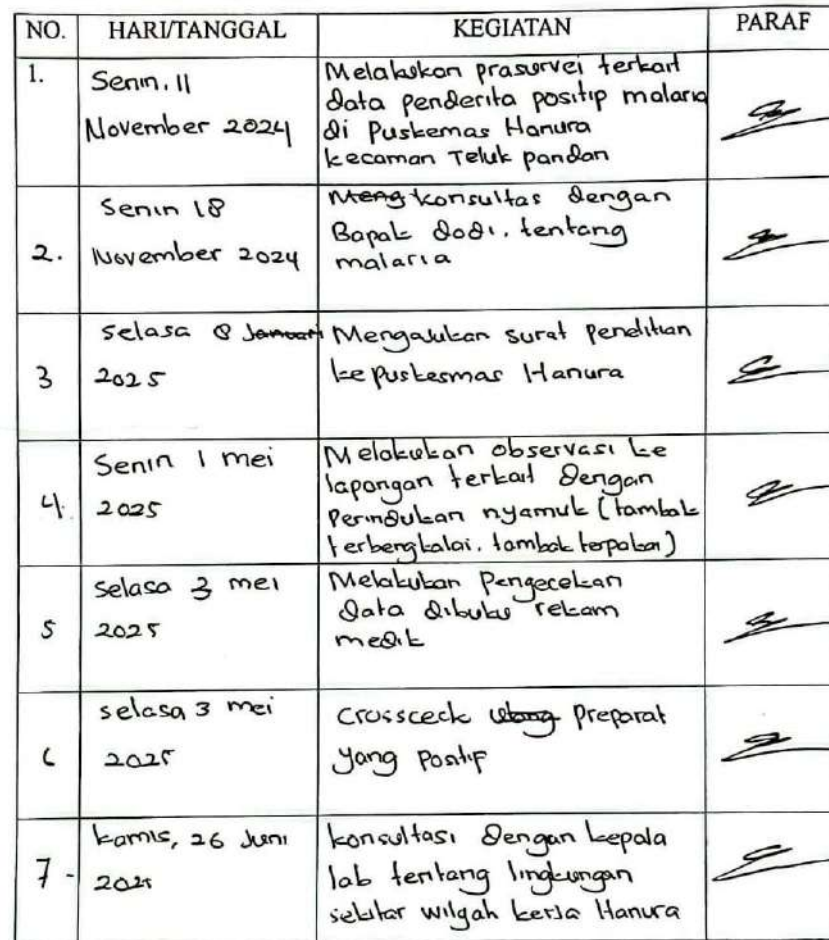 NO. HARI/TANGGAL KEGIATAN PARAF
1. Senin, 11 November 2024
Melakukan prasurvei terkait
data penderita positip malaria
di Puskemas Hanura
kecaman Teluk pandan
2. Senin 18 November 2024
Meng konsultas dengan
Bapak dodi. tentang
malaria
3 selasa 8 Januari 2025
Mengajukan surat penelitian
ke puskesmas Hanura
4. Senin 1 mei 2025
Melakukan observasi ke
lapangan terkait dengan
Perindukan nyamuk (tambak
terbengkalai. tambak terpakai)
5 selasa 3 mei 2025
Melakukan Pengecekan
data dibuku rekam
medik
6 selasa 3 mei 2025
Crossceck preparat
yang Positif
7 - kamis, 26 Juni 2025
konsultasi dengan kepala
lab tentang lingkungan
sekitar wilyah kerja Hanura